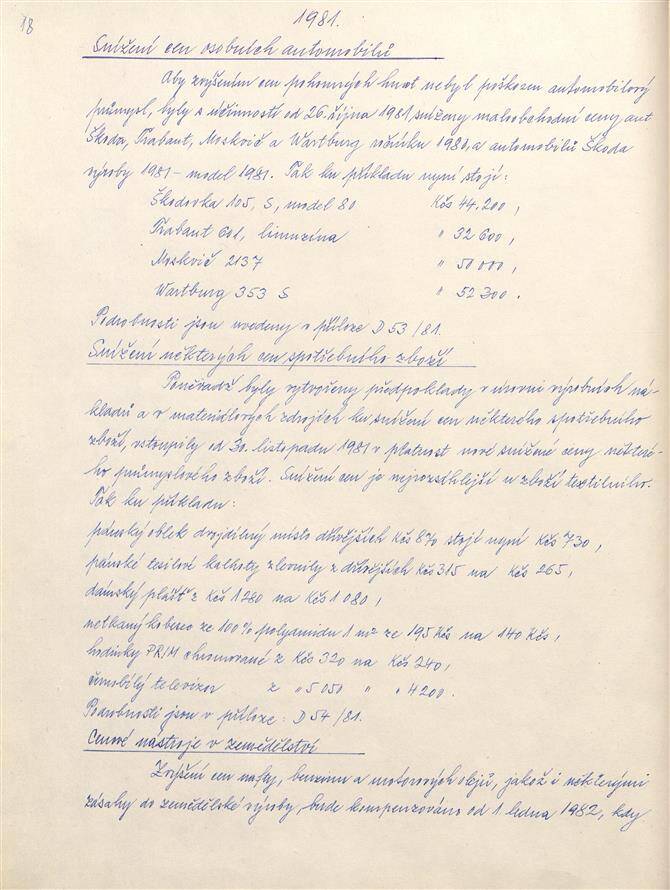 18
1981.
Snížení cen osobních automobilů
Aby zvýšením cen pohonných hmot nebyl poškozen automobilový
průmysl, byly s účinností od 26. října 1981 sníženy maloobchodní ceny aut
Škoda, Trabant, Moskvič a Wartburg ročníku 1980, a automobilů Škoda
výroby 1981 - model 1981. Tak ku příkladu nyní stojí:
Škodovka 105, S, model 80 Kčs 44.200,
Trabant 601, limuzína " 32 600,
Moskvič 2137 " 50 000,
Wartburg 353 S " 52 300.
Podrobnosti jsou uvedeny v příloze D 53/81.
Snížení některých cen spotřebního zboží
Poněvadž byly vytvořeny předpoklady v úrovni výrobních ná-
kladů a v materiálových zdrojích ku snížení cen některého spotřebního
zboží, vstoupily od 30. listopadu 1981 v platnost nové snížené ceny některé-
ho průmyslového zboží. Snížení cen je nejrozsáhlejší u zboží textilního.
Tak ku příkladu:
pánský oblek dvojdílný místo dřívějších Kčs 870 stojí nyní Kčs 730,
pánské tesilové kalhoty zlevnily z dřívějších Kčs 315 na Kčs 265,
dámský plášť z Kčs 1 280 na Kčs 1 080,
netkaný koberec ze 100% polyamidu 1 m² ze 195 Kčs na 140 Kčs,
hodinky PRIM chromované z Kčs 320 na Kčs 240,
černobílý televizor z " 5 050 " " 4 200.
Podrobnosti jsou v příloze: D 54/81.
Cenové nástroje v zemědělství
Zvýšení cen nafty, benzinu a motorových olejů, jakož i některými
zásahy do zemědělské výroby, bude kompenzováno od 1 ledna 1982, kdy